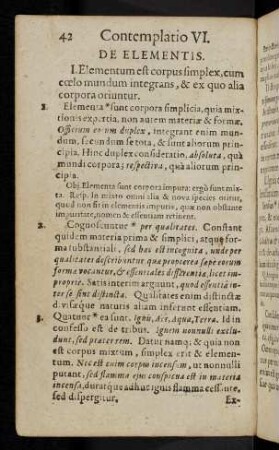 42 Contemplatio VI.
DE ELEMENTIS.
I. Elementum est corpus simplex, cum
cœlo mundum integrans, & ex quo alia
corpora oriuntur.
1. Elementa * sunt corpora simplicia, quia mix-
tionis expertia, non autem materiæ & formæ.
Officium eorum duplex, integrant enim mun-
dum, secundum se tota, & sunt aliorum prin-
cipia. Hinc duplex consideratio, absoluta, quà
mundi corpora; respectiva, quà aliorum prin-
cipia.
Obj. Elementa sunt corpora impura: ergò sunt mix-
ta. Resp. In mixto omni alia & nova species oritur,
quod non fit in elementis impuris, quæ non obstante
impuritate, nomen & essentiam retinent.
2. Cognoscuntur * per qualitates. Constant
quidem materia prima & simplici, atque for-
ma substantiali: sed hoc est incognita, unde per
qualitates describuntur, quæ propterea sæpe eorum
formæ vocantur, & essentiales differentiæ, licet im-
propriè. Satis interim arguunt, quod essentiâ in-
ter se sint distincta. Qualitates enim distinctæ
diversæque naturis aliam inferunt essentiam.
3. Quatuor * ea sunt. Ignis, Aër, Aqua, Terra. Id in
confesso est de tribus. Ignem nonnulli exclu-
dunt, sed præter rem. Datur namq; & quia non
est corpus mixtum, simplex erit & elemen-
tum. Nec est enim corpus incensum, ut nonnulli
putant, sed flamma ejus conspicua est in materia
incensa, durat que adhuc ignis flamma cessante,
sed dispergitur.
Ex-